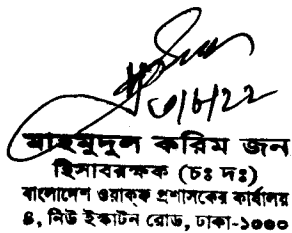 মাহমুদুল করিম জন
হিসাবরক্ষক (চঃ দঃ)
বাংলাদেশ ওয়াক্ফ প্রশাসকের কার্যালয়
৪, নিউ ইস্কাটন রোড, ঢাকা-১০০০